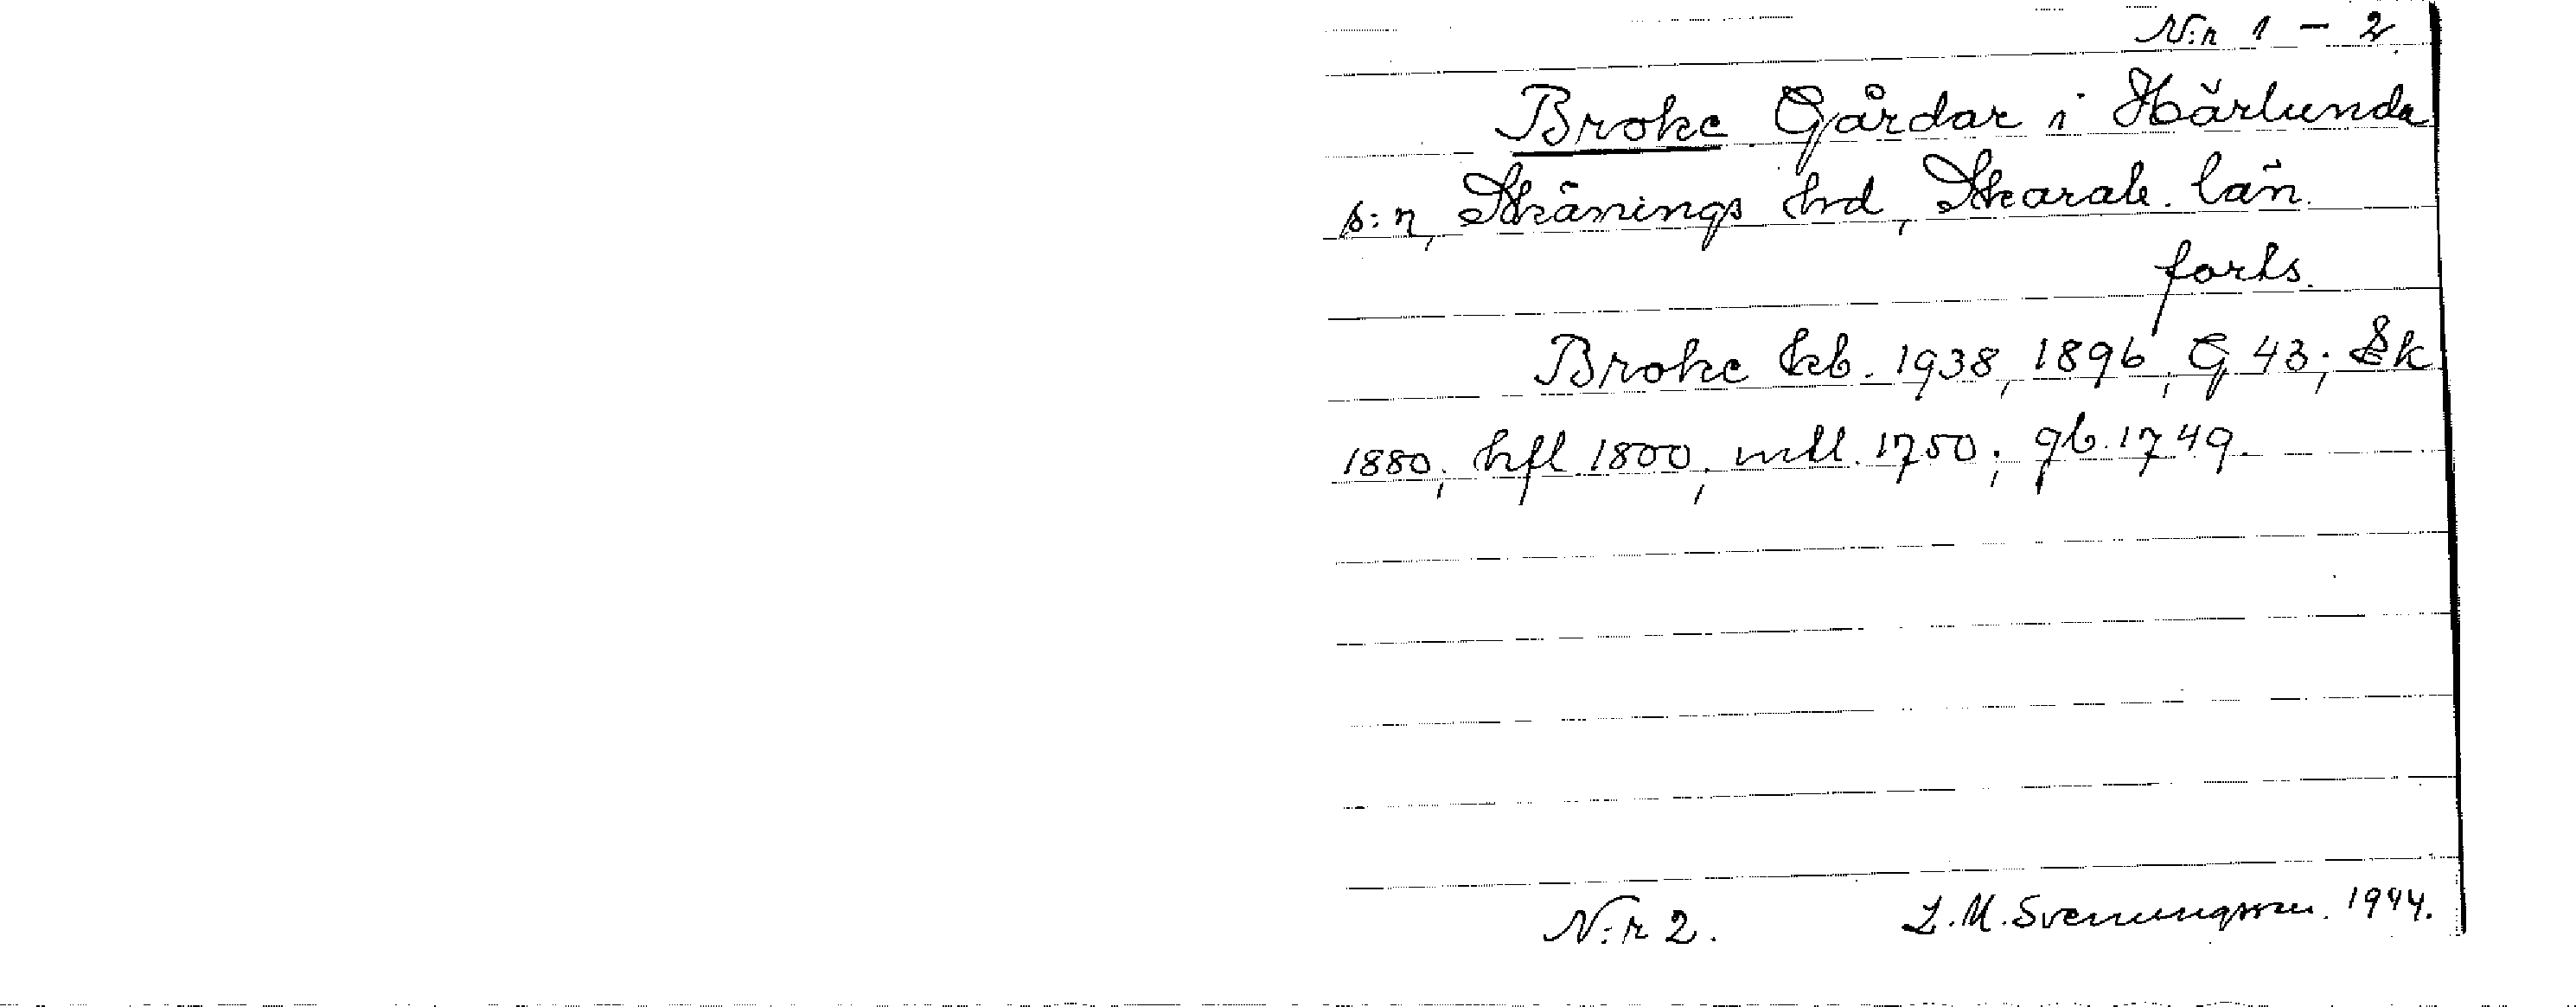 N:r 1 - 2.
Broke Gårdar i Härlunda
s:n, Skånings hrd, Skarab. län.
forts.
Broke kb. 1938, 1896; G 43; Ek
1880; hfl 1800; mtl. 1750; gb. 1749.
N:r 2. L.M. Svenungsson. 1944.